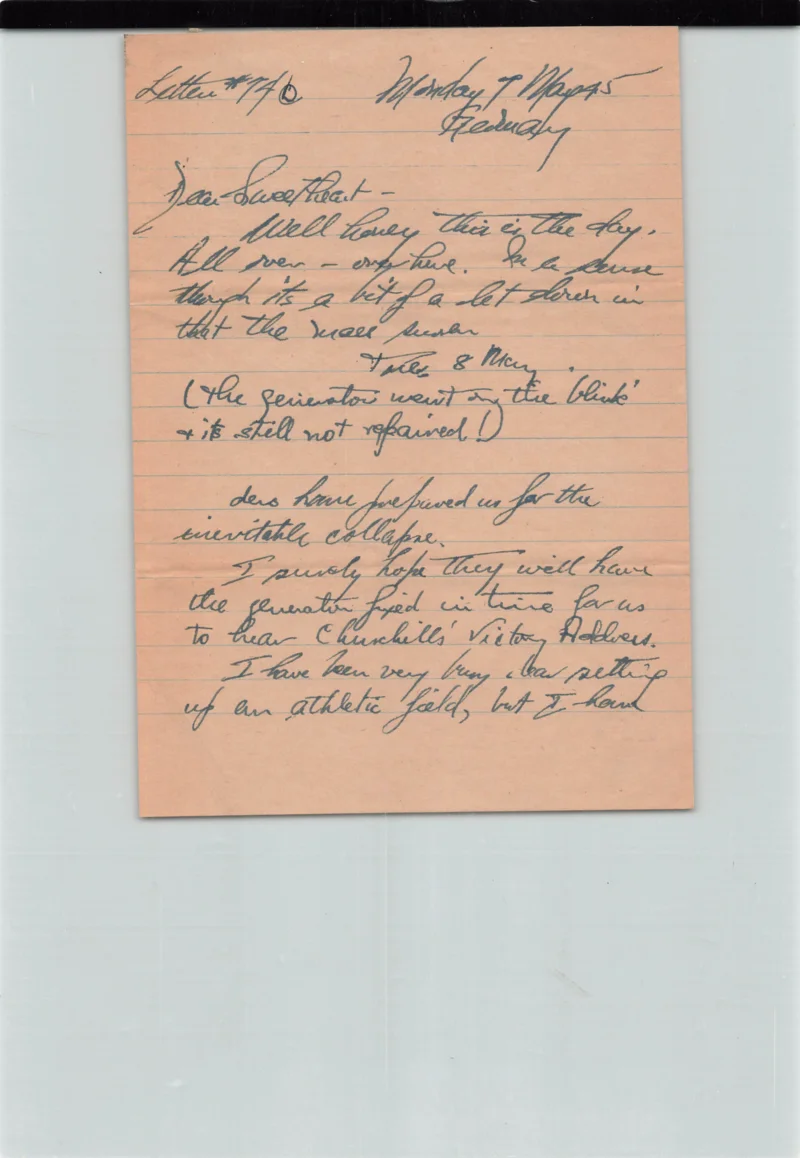 Letter #74 b
Monday 7 May 45
Germany
Dear Sweetheart -
Well honey this is the day.
All over - over here. In a sense
though it's a bit of a let down in
that the mass surren
Tues 8 May.
(the generator went on the 'blink'
+ it's still not repaired!)
ders have prepared us for the
inevitable collapse.
I surely hope they will have
the generator fixed in time for us
to hear Churchills' Victory Address.
I have been very busy setting
up an athletic field, but I have